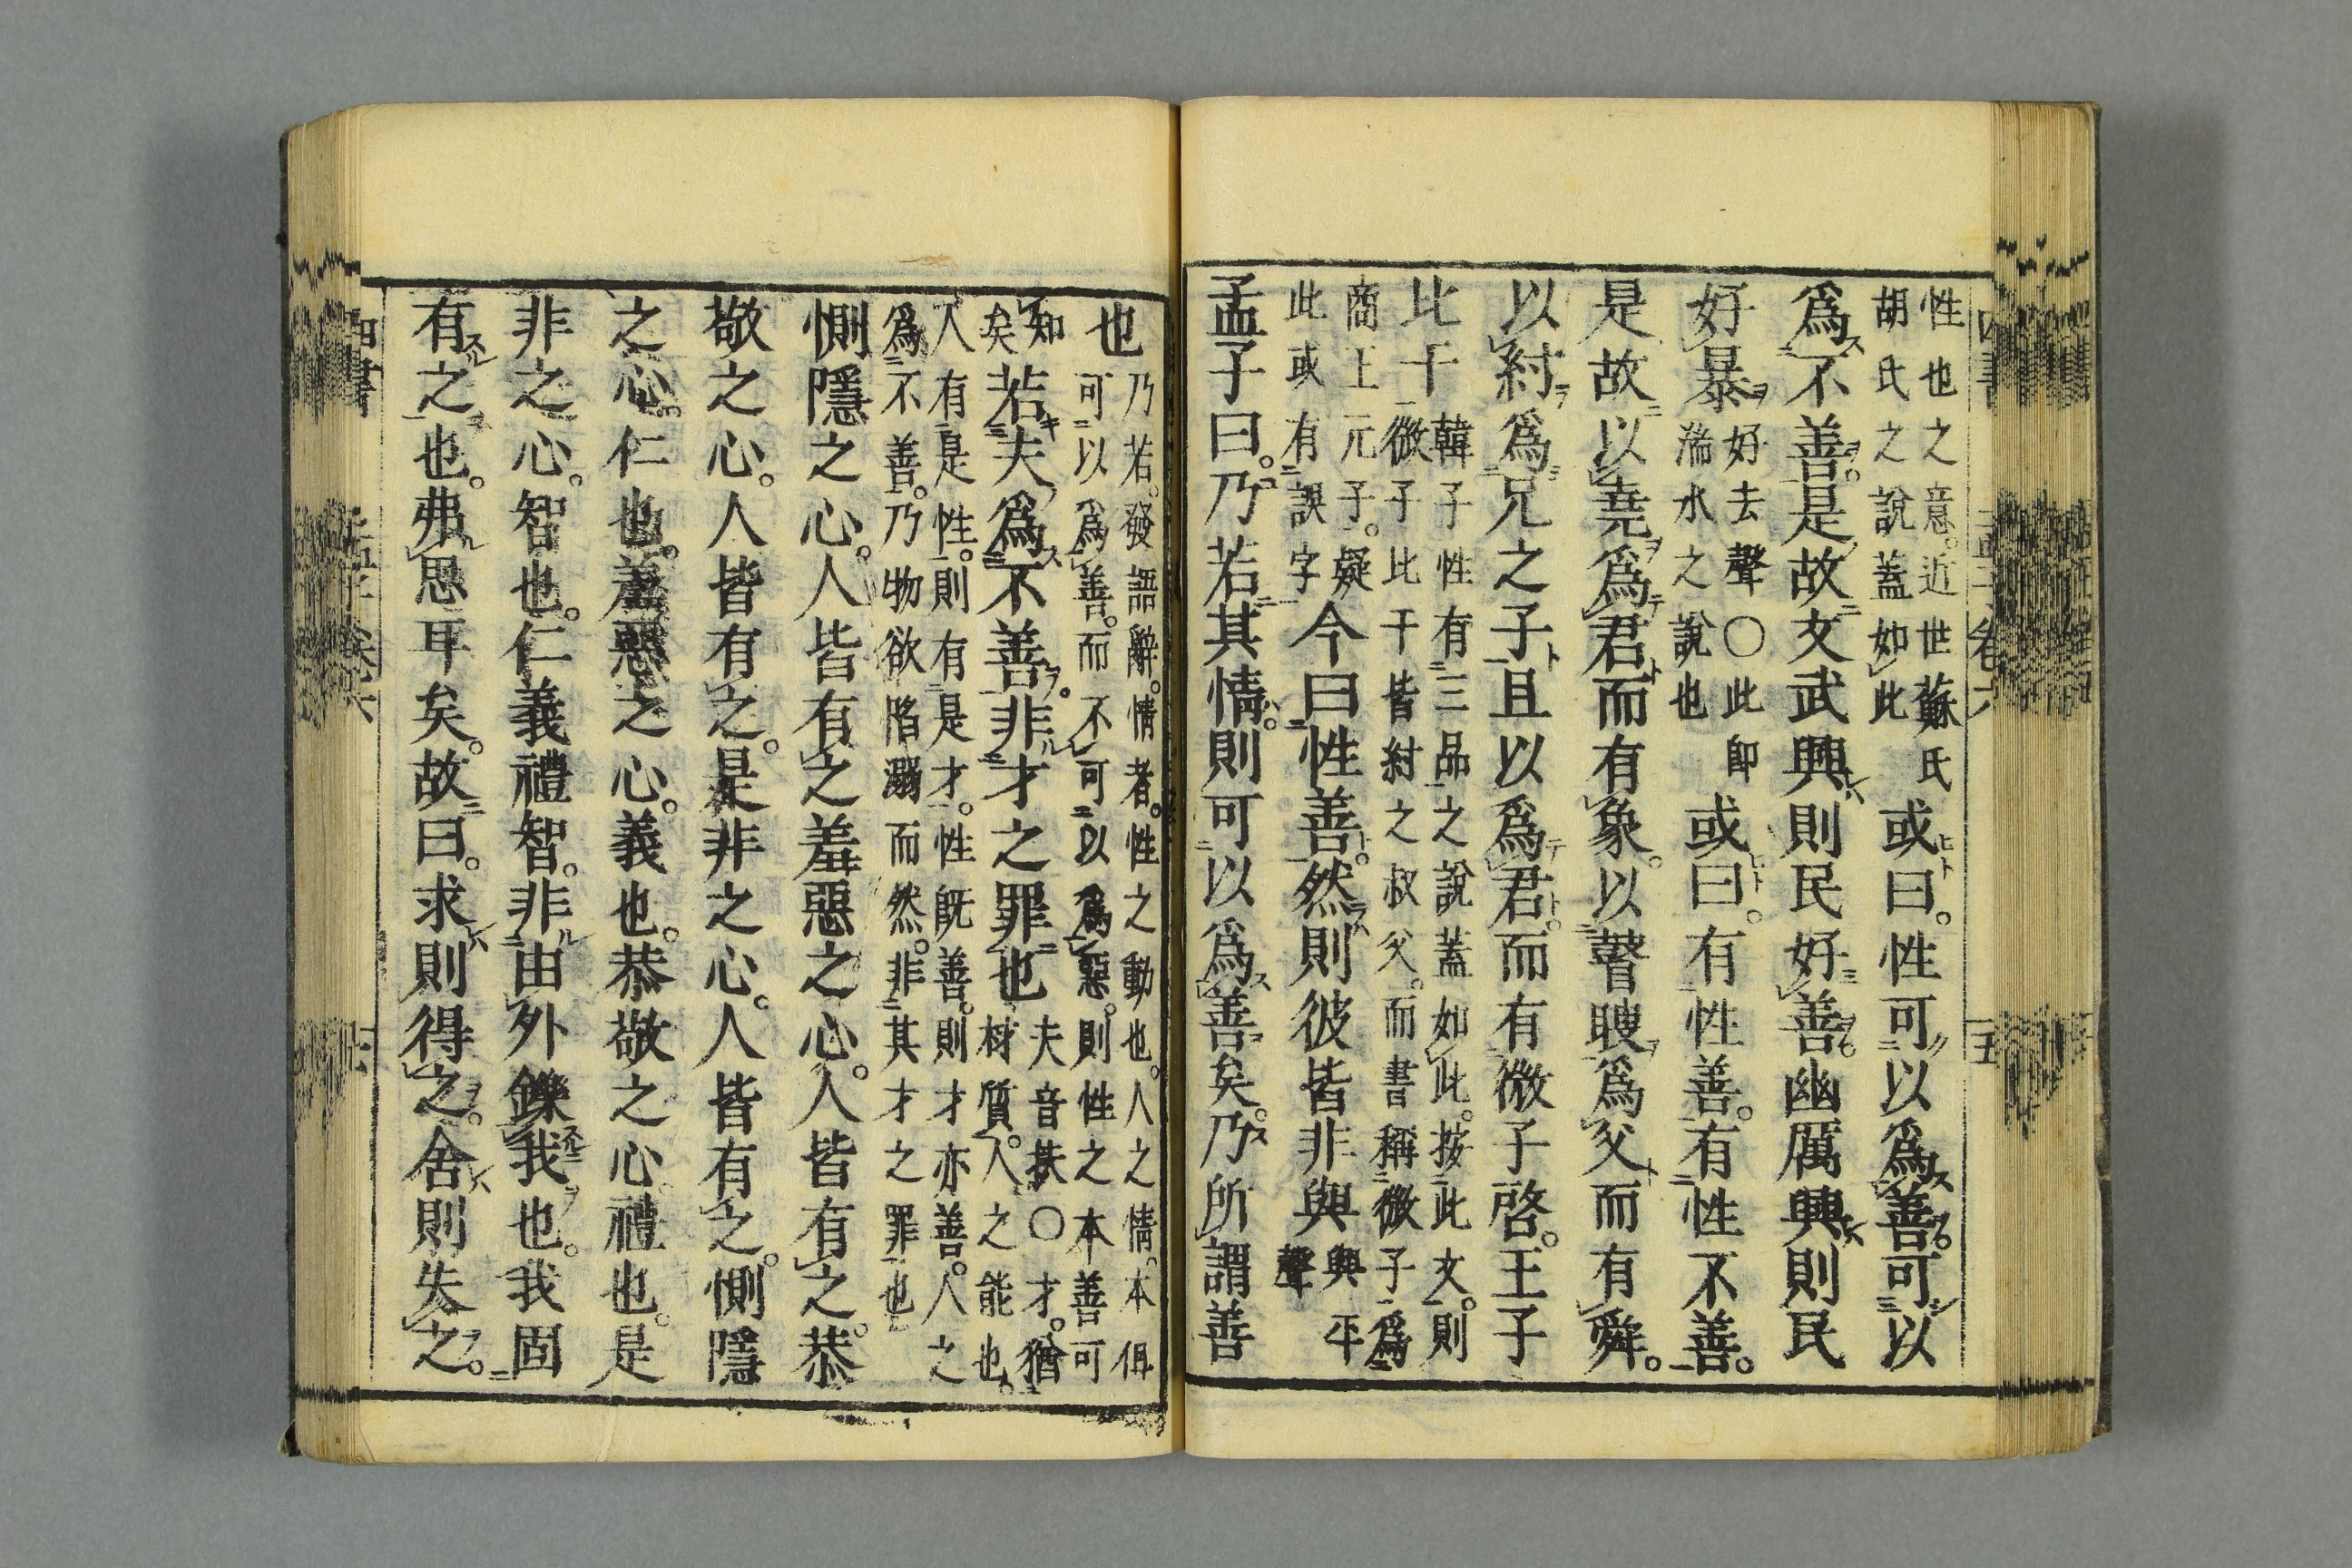 四書 孟子卷六 五
性也之意。近世蘇氏
胡氏之說蓋如此
或曰。性可以爲善。可以
爲不善。是故文武興則民好善。幽厲興則民
好暴
好去聲〇此即
湍水之說也
或曰。有性善。有性不善。
是故以堯爲君而有象。以瞽瞍爲父而有舜。
以紂爲兄之子且以爲君。而有微子啓。王子
比干
韓子性有三品之說蓋如此。按此文。則
微子比干皆紂之叔父。而書稱微子爲
商王元子。疑
此或有誤字
今曰性善。然則彼皆非與
與平
聲
孟子曰。乃若其情。則可以爲善矣。乃所謂善
也
乃若。發語辭。情者。性之動也。人之情。本但
可以爲善。而不可以爲惡。則性之本善可
知
矣
若夫爲不善。非才之罪也
夫音扶〇才。猶
材質。人之能也。
人有是性。則有是才。性既善。則才亦善。人之
爲不善。乃物欲陷溺而然。非其才之罪也
惻隱之心。人皆有之。羞惡之心。人皆有之。恭
敬之心。人皆有之。是非之心。人皆有之。惻隱
之心。仁也。羞惡之心。義也。恭敬之心。禮也。是
非之心。智也。仁義禮智。非由外鑠我也。我固
有之也。弗思耳矣。故曰。求則得之。舍則失之。
四書 孟子卷六